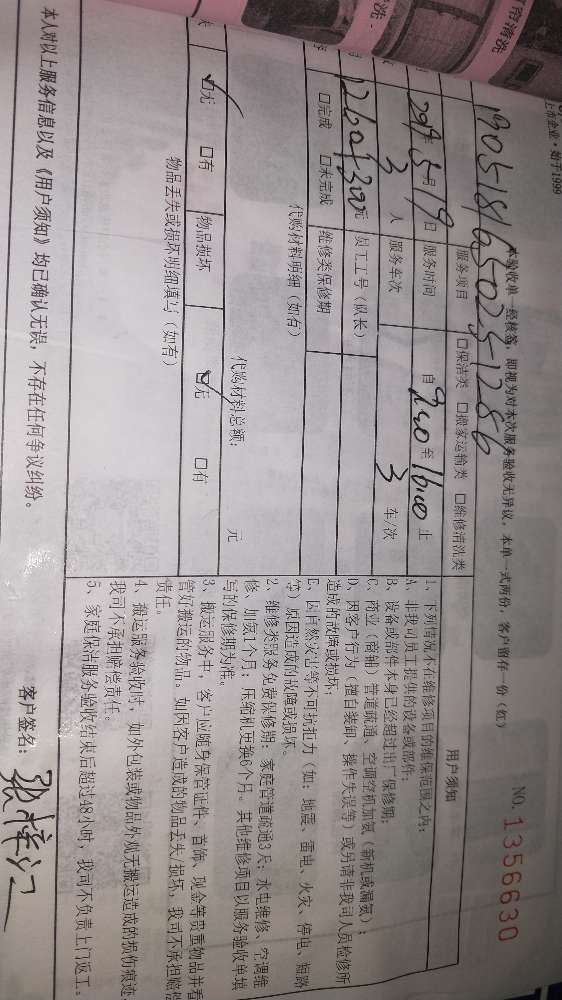 上市企业·始于1999
本验收单一经核签，即视为对本次服务验收无异议，本单一式两份，客户留存一份（红）
NO. 1356630
1905181650251286
服务项目 □保洁类 □搬家运输类 □维修清洗类
月19日 服务时间 自 至16:00止
3人 服务车次 3 车/次
1260+300元 员工工号（队长）
□完成 □未完成 维修类保修期
代购材料明细（如有）
代购材料总额： 元
☑无 □有 物品损坏 ☑无 □有
物品丢失或损坏明细填写（如有）
用户须知
1、下列情况不在维修项目的维保范围之内：
A、非我司员工提供的设备或部件；
B、设备或部件本身已经超过出厂保修期；
C、商业（商铺）管道疏通、空调空机加氨（新机或漏氨）；
D、因客户行为（擅自装卸、操作失误等）或另请非我司人员检修所
造成的故障或损坏；
E、因自然灾害等不可抗拒力（如：地震、雷电、火灾、停电、短路
等）原因造成的故障或损坏。
2、维修类服务免费保修期：家庭管道疏通3天；水电维修、空调维
修、加氨1个月；压缩机更换6个月。其他维修项目以服务验收单填
写的保修期为准。
3、搬运服务中，客户应随身保管证件、首饰、现金等贵重物品并看
管好搬运的物品。如因客户造成的物品丢失/损坏，我司不承担赔偿
责任。
4、搬运服务验收时，如外包装或物品外观无搬运造成的损伤痕迹
我司不承担赔偿责任。
5、家庭保洁服务验收结束后超过48小时，我司不负责上门返工。
本人对以上服务信息以及《用户须知》均已确认无误，不存在任何争议纠纷。
客户签名：